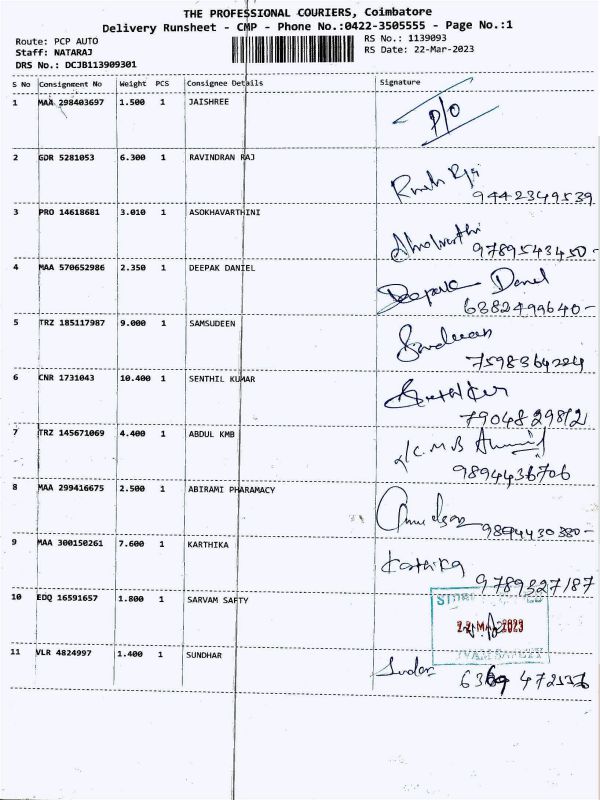 THE PROFESSIONAL COURIERS, Coimbatore
Delivery Runsheet - CMP - Phone No.:0422-3505555 - Page No.:1
Route: PCP AUTO RS No.: 1139093
Staff: NATARAJ RS Date: 22-Mar-2023
DRS No.: DCJB113909301
S No Consignment No Weight PCS Consignee Details Signature
1 MAA 298403697 1.500 1 JAISHREE
P/O
2 GDR 5281053 6.300 1 RAVINDRAN RAJ
9442349539
3 PRO 14618681 3.010 1 ASOKHAVARTHINI
9789543450-
4 MAA 570652986 2.350 1 DEEPAK DANIEL
Deepak Daniel
6382499640-
5 TRZ 185117987 9.000 1 SAMSUDEEN
7598364224
6 CNR 1731043 10.400 1 SENTHIL KUMAR
7904829812
7 TRZ 145671069 4.400 1 ABDUL KMB
K.M.B
9894436706
8 MAA 299416675 2.500 1 ABIRAMI PHARAMACY
9894430380-
9 MAA 300150261 7.600 1 KARTHIKA
Karthika
9789327187
10 EDQ 16591657 1.800 1 SARVAM SAFTY
22 MAR 2023
11 VLR 4824997 1.400 1 SUNDHAR
Sundar